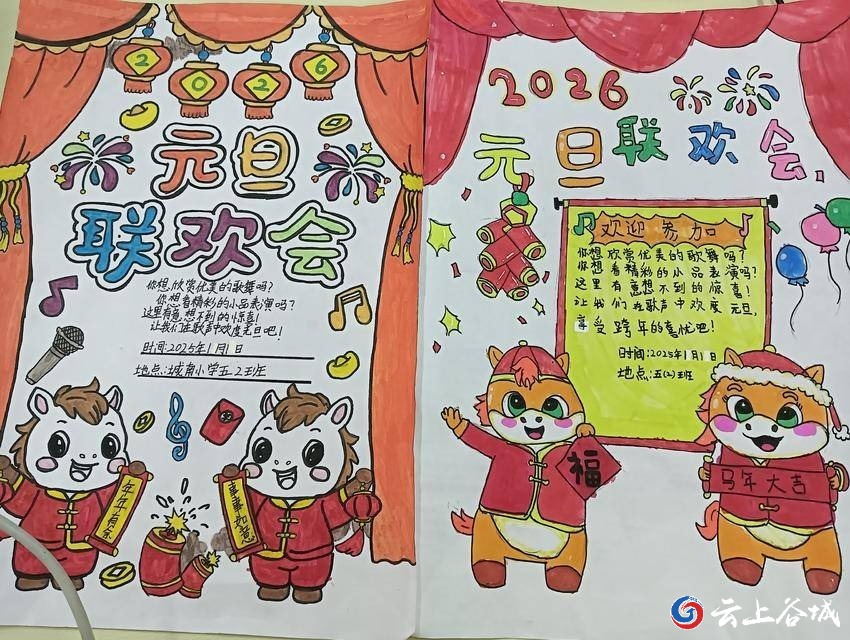 2026
元旦
联欢会
你想欣赏优美的歌舞吗?
你想看精彩的小品表演吗?
这里有意想不到的惊喜!
让我们在歌声中欢度元旦吧!
时间:2025年1月1日
地点:城南小学五2班
年年有余
事事如意
2026
元旦联欢会
欢迎参加
你想欣赏优美的歌舞吗?
你想看精彩的小品表演吗?
这里有意想不到的惊喜!
让我们在歌声中欢度元旦,
享受跨年的喜悦吧!
时间:2025年1月1日
地点:五(2)班
福
马年大吉
云上谷城